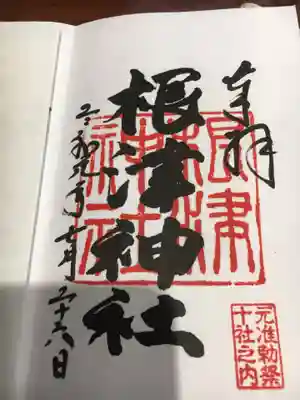 奉拝
根津神社
根津神社
令和元年
月二十六日
元准勅祭
十社之内